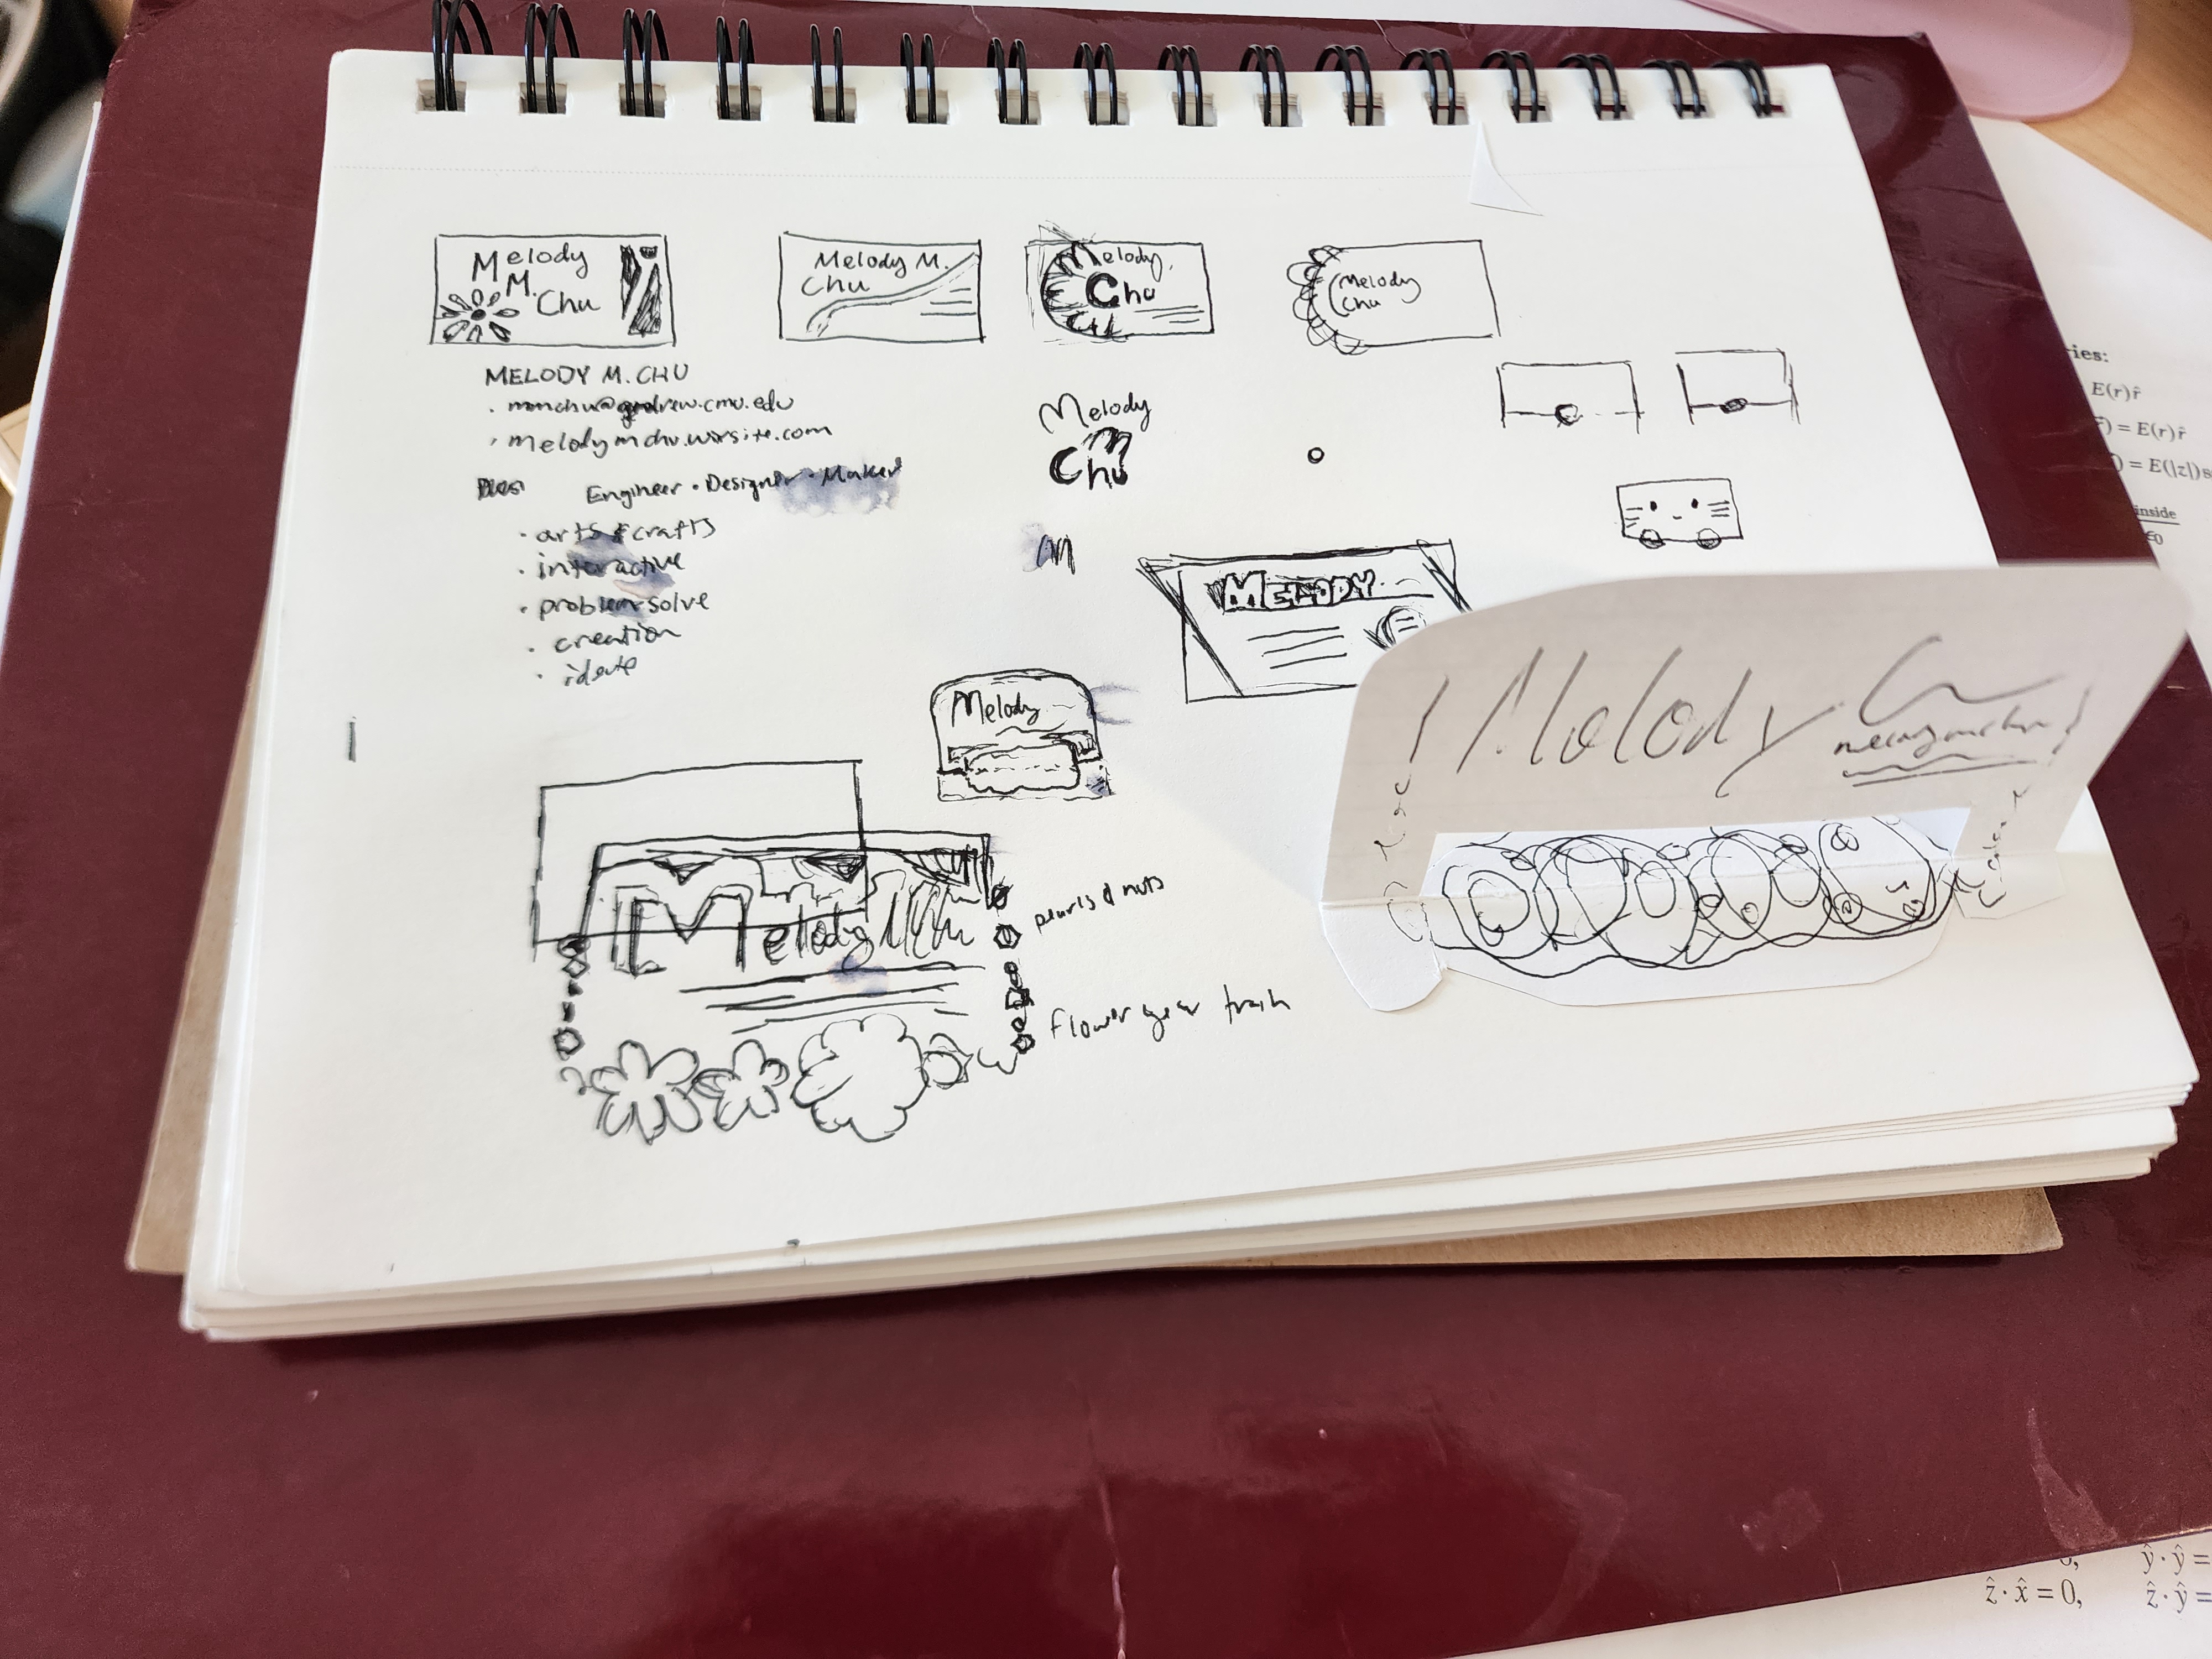 Melody
M.
Chu
Melody M.
Chu
Melody
Chu
Melody
Chu
MELODY M. CHU
melodymchu.wixsite.com
Engineer · Designer · Maker
· arts & crafts
· interactive
· problem solve
· creation
· ideate
Melody
Chu
M
MELODY
Melody
Melody
Melody
pearls & nuts
flower gear train
ies:
E(r)r̂
) = E(r)r̂
) = E(|z|)s
inside
ε0
0,
ŷ · ŷ =
ẑ · x̂ = 0,
ẑ · ŷ =